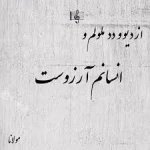 از دیو و دد ملولم و
انسانم آرزوست
مولانا